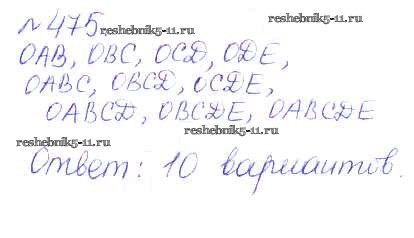 №475
reshebnik5-11.ru
reshebnik5-11.ru
OAB, OBC, OCD, ODE,
OABC, OBCD, OCDE,
reshebnik5-11.ru
OABCD, OBCDE, OABCDE
reshebnik5-11.ru
reshebnik5-11.ru
Ответ: 10 вариантов.
reshebnik5-11.ru